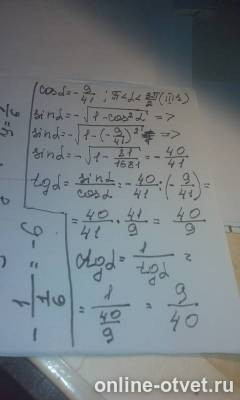 cosα = -9/41; π<α<3π/2 (III ч)
sinα = -√(1-cos²α) =>
sinα = -√(1-(-9/41)²) =>
sinα = -√(1-81/1681) = -40/41
tgα = sinα/cosα = -40/41 : (-9/41) =
= 40/41 · 41/9 = 40/9
ctgα = 1/tgα =
= 1/(40/9) = 9/40
-1/(1/6) = -6
y = 1/6
online-otvet.ru